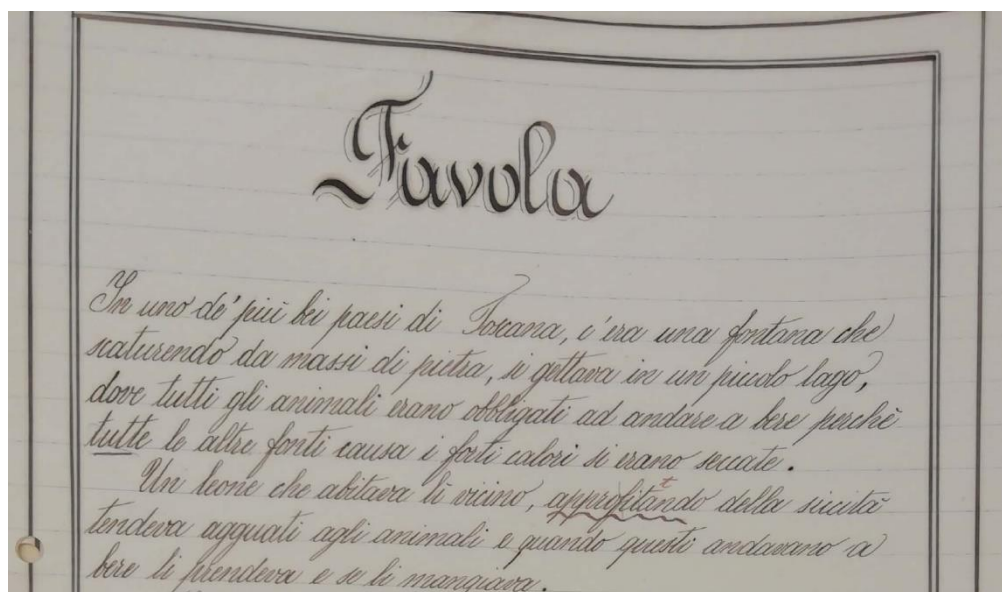 Favola
In uno de' più bei paesi di Toscana, c'era una fontana che
scaturendo da massi di pietra, si gettava in un piccolo lago,
dove tutti gli animali erano obbligati ad andare a bere perchè
tutte le altre fonti causa i forti calori si erano seccate.
Un leone che abitava lì vicino, approfitando della siccità
tendeva agguati agli animali e quando questi andavano a
bere li prendeva e se li mangiava.